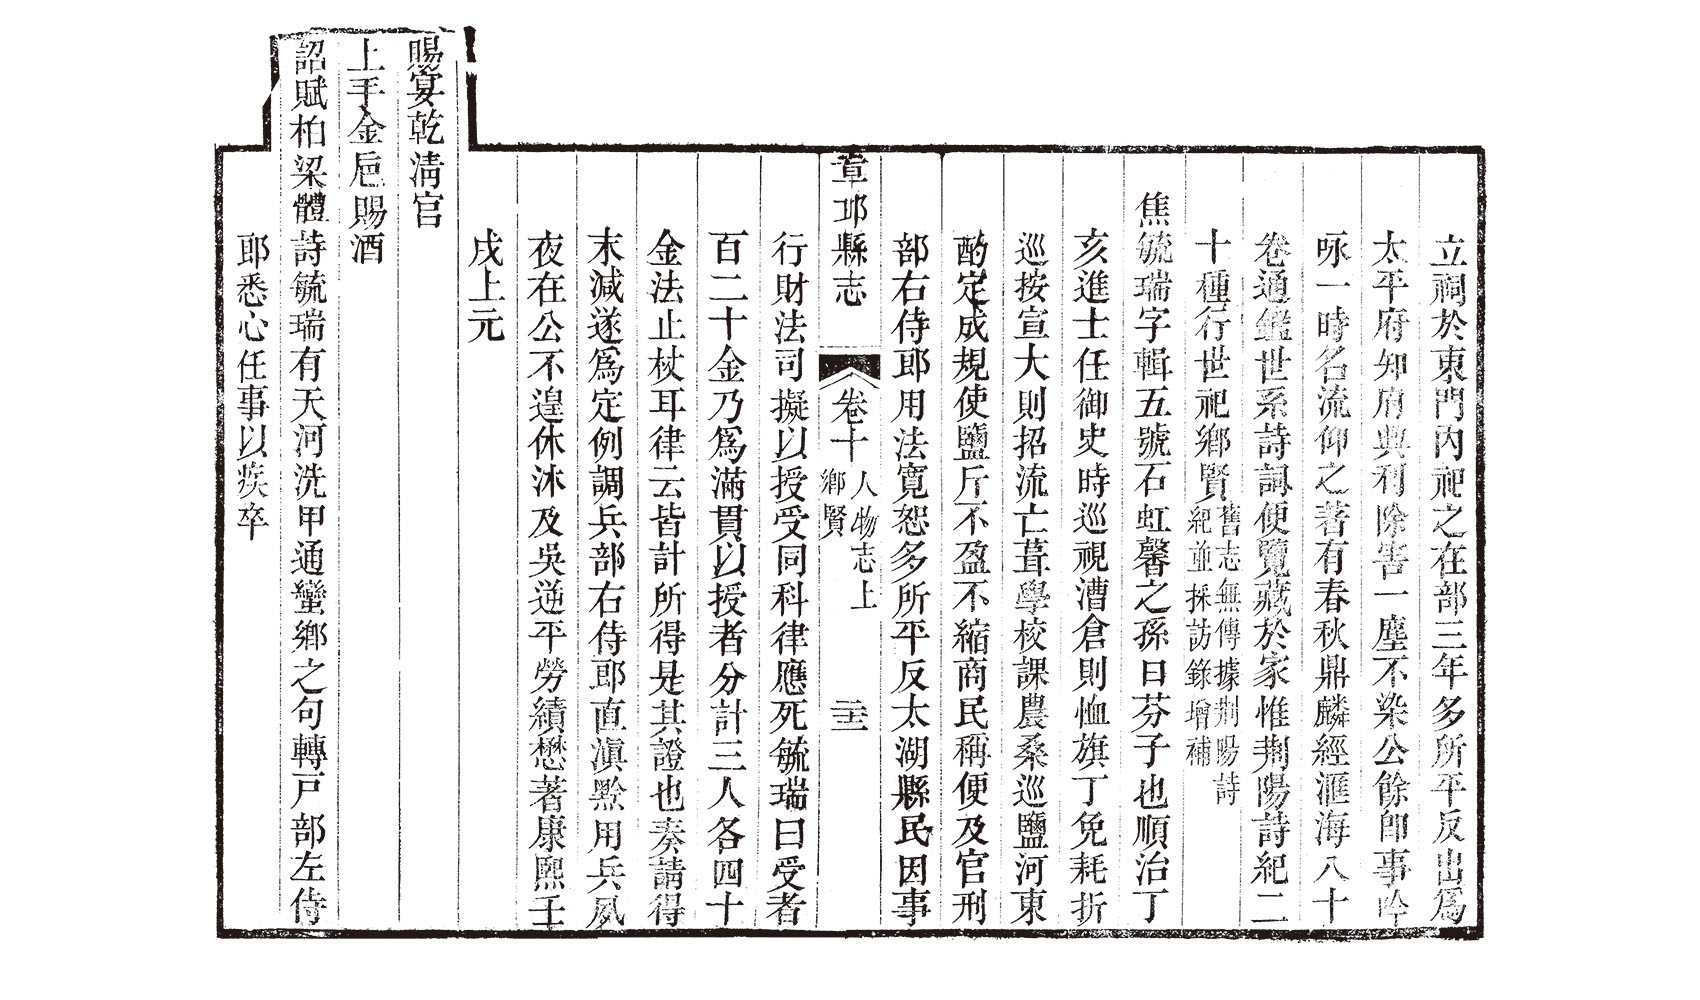 立祠於東門內祀之在部三年多所平反出爲
太平府知府興利除害一塵不染公餘卽事吟
咏一時名流仰之著有春秋鼎麟經滙海八十
卷通鑑世系詩詞便覽藏於家惟荆陽詩紀二
十種行世祀鄉賢舊志無傳據荆陽詩
紀並採訪錄增補
焦毓瑞字輯五號石虹馨之孫日芬子也順治丁
亥進士任御史時巡視漕倉則恤旗丁免耗折
巡按宣大則招流亡葺學校課農桑巡鹽河東
酌定成規使鹽斤不盈不縮商民稱便及官刑
部右侍郎用法寬恕多所平反太湖縣民因事
章邱縣志
卷十
人物志上
鄉賢
三十三
行財法司擬以授受同科律應死毓瑞曰受者
百二十金乃爲滿貫以授者分計三人各四十
金法止杖耳律云皆計所得是其證也奏請得
末減遂爲定例調兵部右侍郎直滇黔用兵夙
夜在公不遑休沐及吳逆平勞績懋著康熙壬
戌上元
賜宴乾淸宮
上手金巵賜酒
詔賦柏梁體詩毓瑞有天河洗甲通蠻鄉之句轉戸部左侍
郎悉心任事以疾卒